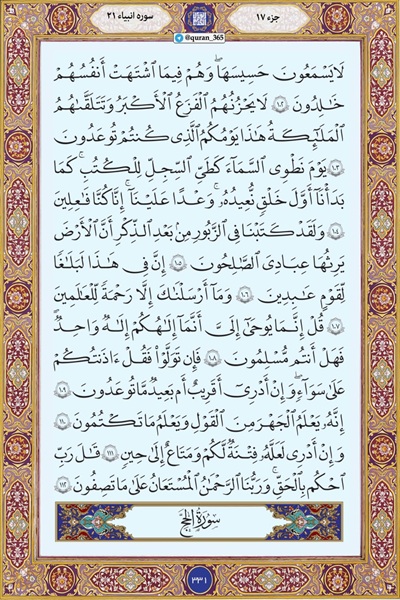 جزء ۱۷
سوره انبیاء ۲۱
@quran_365
لَا يَسْمَعُونَ حَسِيسَهَا ۖ وَهُمْ فِي مَا اشْتَهَتْ أَنْفُسُهُمْ
خَالِدُونَ ١٠٢ لَا يَحْزُنُهُمُ الْفَزَعُ الْأَكْبَرُ وَتَتَلَقَّاهُمُ
الْمَلَائِكَةُ هَٰذَا يَوْمُكُمُ الَّذِي كُنْتُمْ تُوعَدُونَ
١٠٣ يَوْمَ نَطْوِي السَّمَاءَ كَطَيِّ السِّجِلِّ لِلْكُتُبِ ۚ كَمَا
بَدَأْنَا أَوَّلَ خَلْقٍ نُعِيدُهُ ۚ وَعْدًا عَلَيْنَا ۚ إِنَّا كُنَّا فَاعِلِينَ
١٠٤ وَلَقَدْ كَتَبْنَا فِي الزَّبُورِ مِنْ بَعْدِ الذِّكْرِ أَنَّ الْأَرْضَ
يَرِثُهَا عِبَادِيَ الصَّالِحُونَ ١٠٥ إِنَّ فِي هَٰذَا لَبَلَاغًا
لِقَوْمٍ عَابِدِينَ ١٠٦ وَمَا أَرْسَلْنَاكَ إِلَّا رَحْمَةً لِلْعَالَمِينَ
١٠٧ قُلْ إِنَّمَا يُوحَىٰ إِلَيَّ أَنَّمَا إِلَٰهُكُمْ إِلَٰهٌ وَاحِدٌ ۖ
فَهَلْ أَنْتُمْ مُسْلِمُونَ ١٠٨ فَإِنْ تَوَلَّوْا فَقُلْ آذَنْتُكُمْ
عَلَىٰ سَوَاءٍ ۖ وَإِنْ أَدْرِي أَقَرِيبٌ أَمْ بَعِيدٌ مَا تُوعَدُونَ ١٠٩
إِنَّهُ يَعْلَمُ الْجَهْرَ مِنَ الْقَوْلِ وَيَعْلَمُ مَا تَكْتُمُونَ ١١٠
وَإِنْ أَدْرِي لَعَلَّهُ فِتْنَةٌ لَكُمْ وَمَتَاعٌ إِلَىٰ حِينٍ ١١١ قَالَ رَبِّ
احْكُمْ بِالْحَقِّ ۗ وَرَبُّنَا الرَّحْمَٰنُ الْمُسْتَعَانُ عَلَىٰ مَا تَصِفُونَ ١١٢
سورة الحج
٣٣١